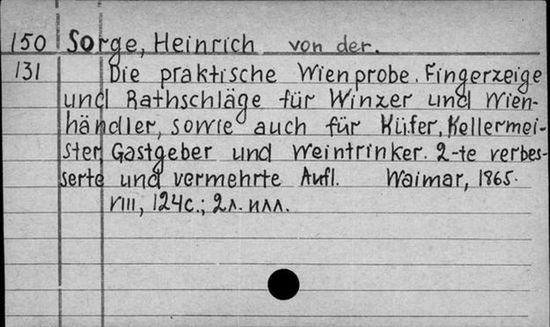 150 Sorge, Heinrich von der.
131 Die praktische Wienprobe. Fingerzeige
und Rathschläge für Winzer und Wien-
händler, sowie auch für Küfer, Kellermei-
ster, Gastgeber und Weintrinker. 2-te verbes-
serte und vermehrte Aufl. Waimar, 1865.
VIII, 124 с.; 2 л. илл.